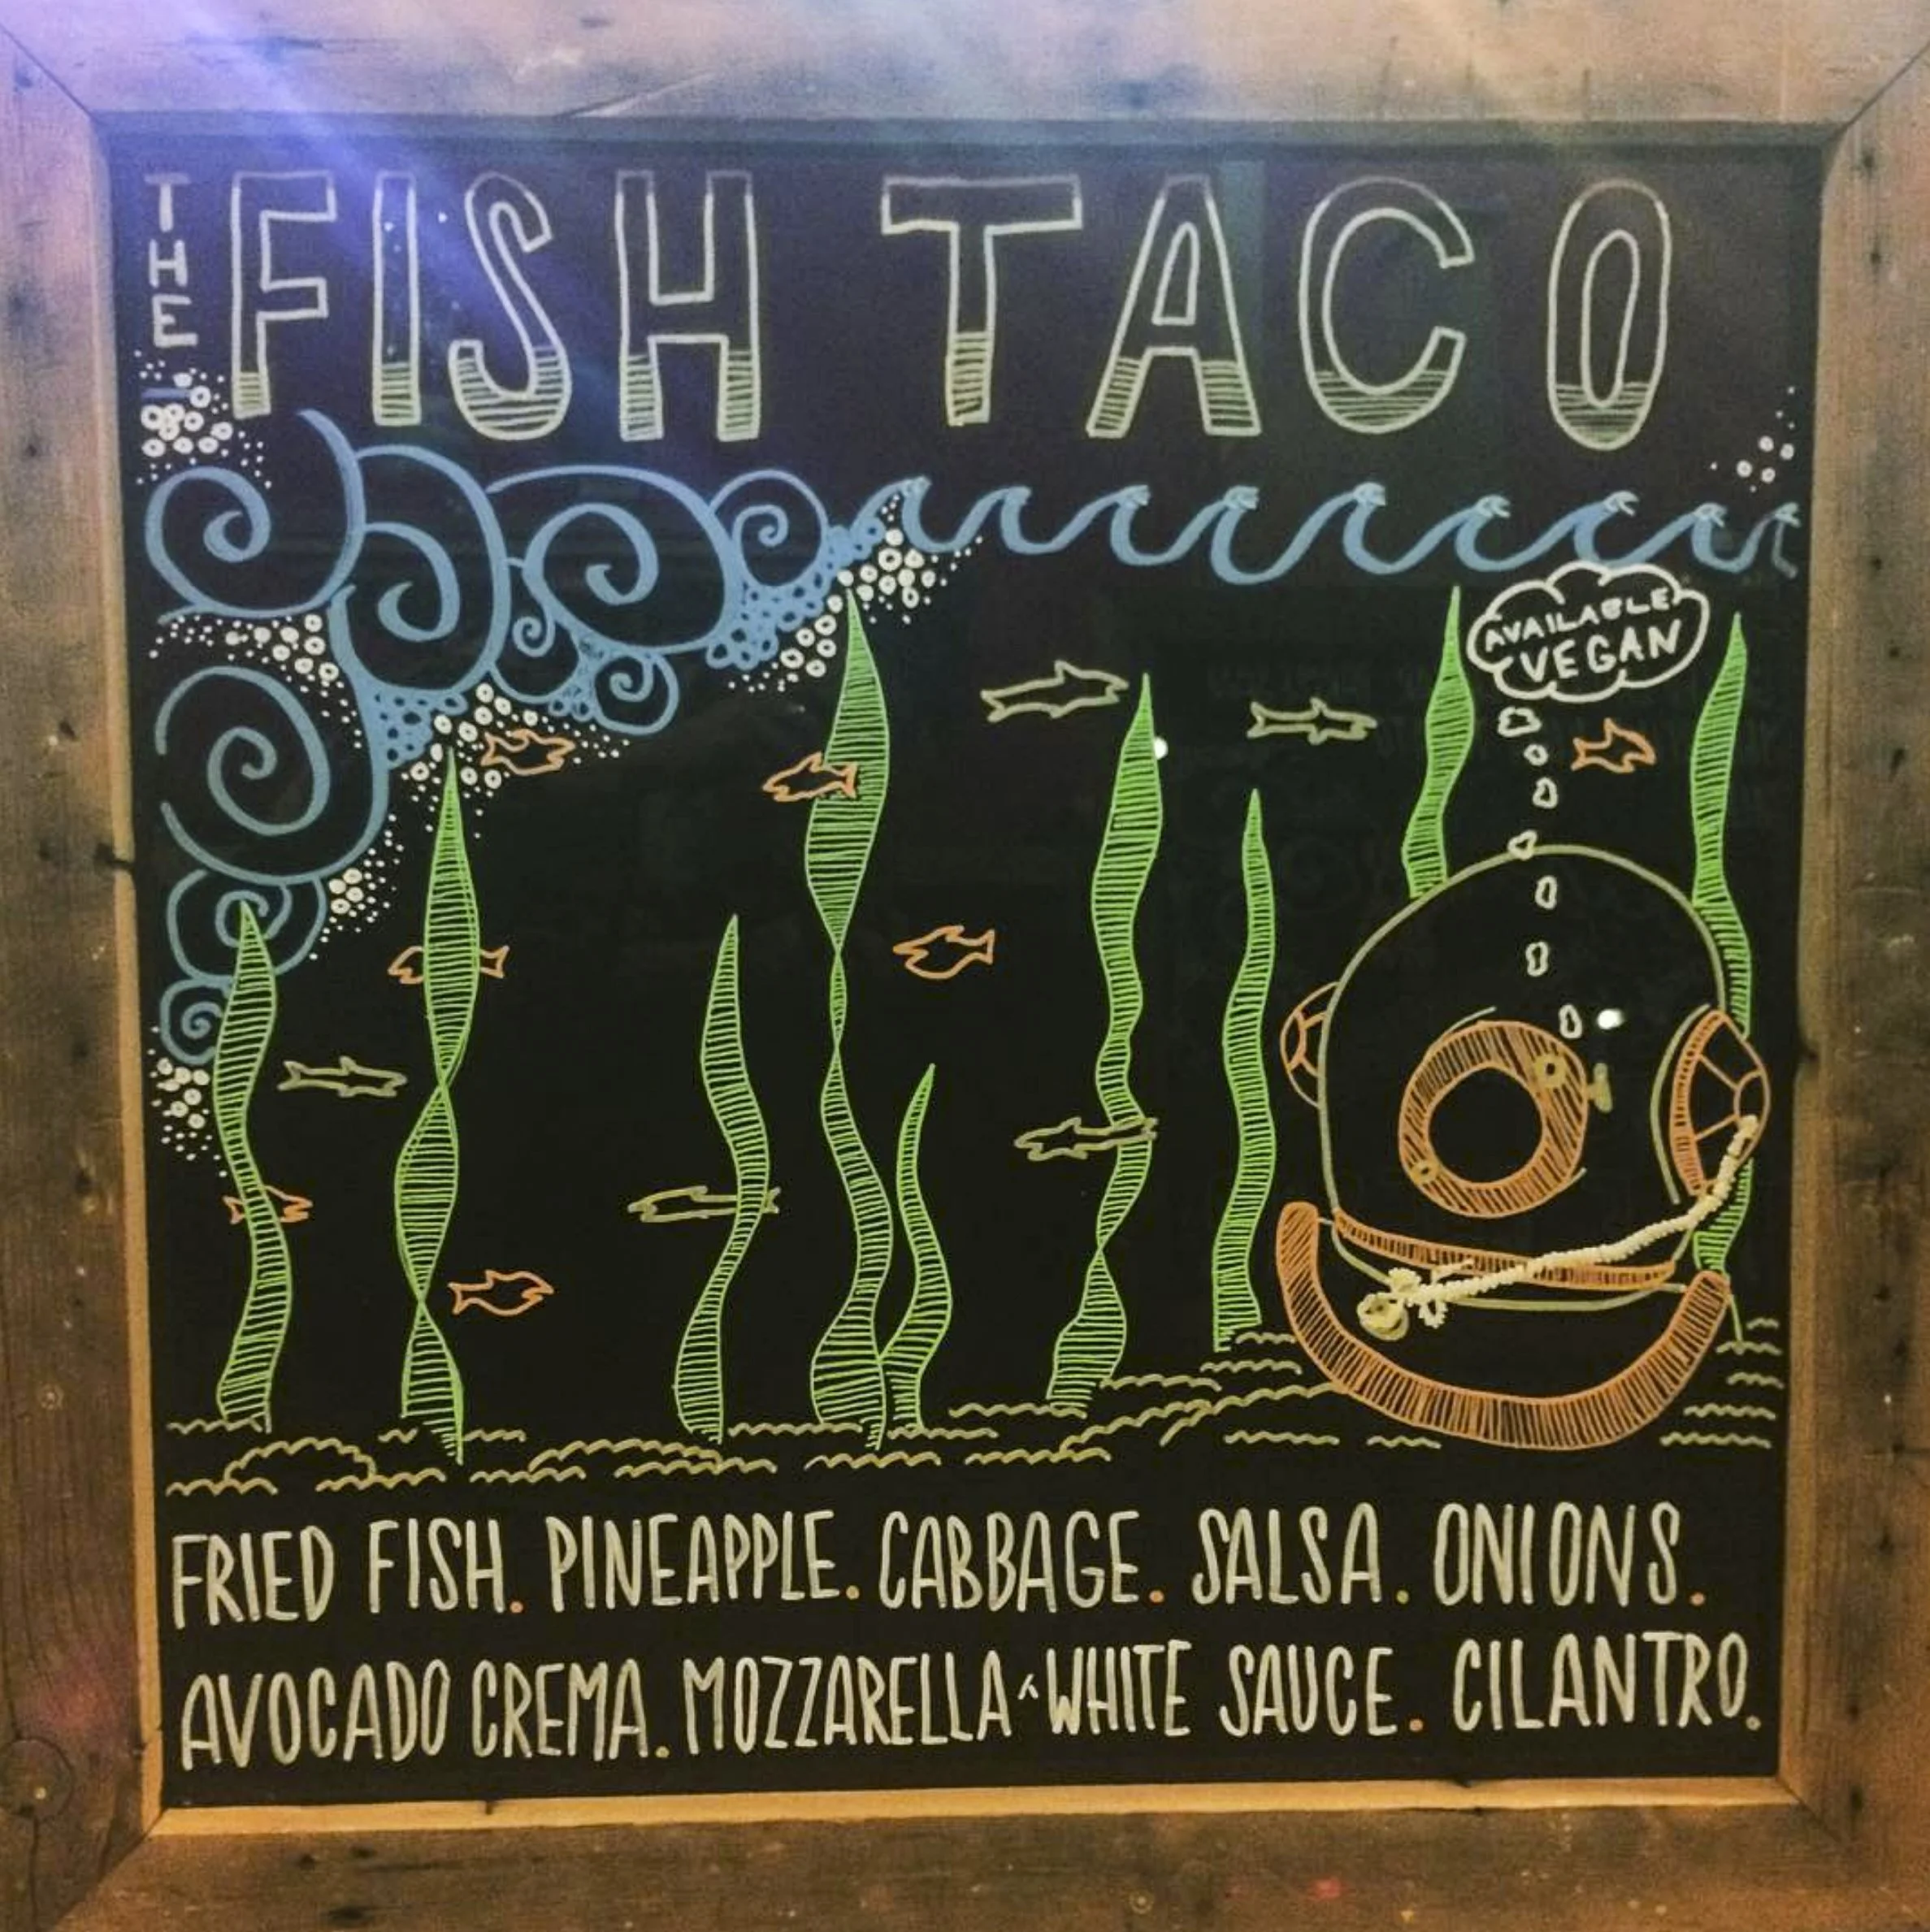 THE FISH TACO
AVAILABLE
VEGAN
FRIED FISH. PINEAPPLE. CABBAGE. SALSA. ONIONS.
AVOCADO CREMA. MOZZARELLA ^ WHITE SAUCE. CILANTRO.